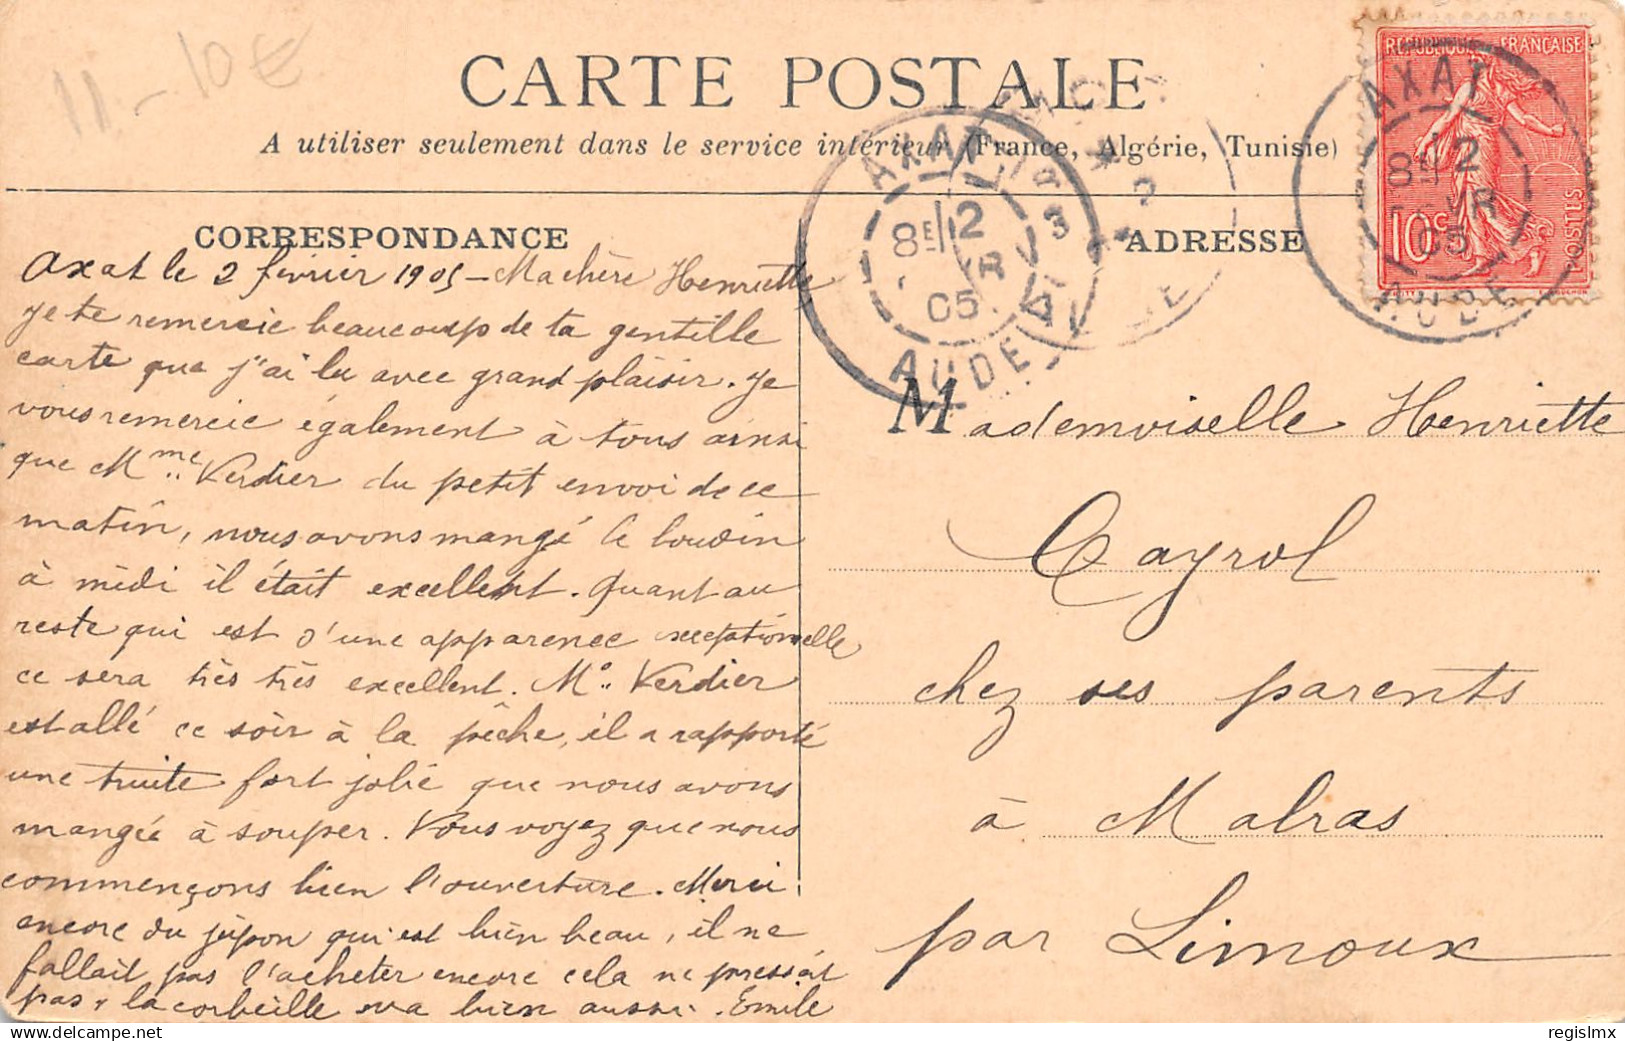 11 - 10€
CARTE POSTALE
A utiliser seulement dans le service intérieur (France, Algérie, Tunisie)
CORRESPONDANCE
Axat le 2 février 1905 - Ma chère Henriette
Je te remercie beaucoup de ta gentille
carte que j'ai lu avec grand plaisir. Je
vous remercie également à tous ainsi
que Mme Verdier du petit envoi de ce
matin, nous avons mangé le boudin
à midi il était excellent. Quant au
reste qui est d'une apparence exceptionelle
ce sera très très excellent. Mr Verdier
est allé ce soir à la pêche, il a rapporté
une truite fort jolie que nous avons
mangée à souper. Vous voyez que nous
commençons bien l'ouverture. Merci
encore du jupon qui est bien beau, il ne
fallait pas l'acheter encore cela ne pressait
pas, la corbeille va bien aussi. Emile
ADRESSE
Mademoiselle Henriette
Cayrol
chez ses parents
à Malras
par Limoux
REPUBLIQUE FRANCAISE
10c
POSTES
AXAT
8E 2
05
AUDE
AXAT
8E 2
VR
05
AUDE
3
regislmx